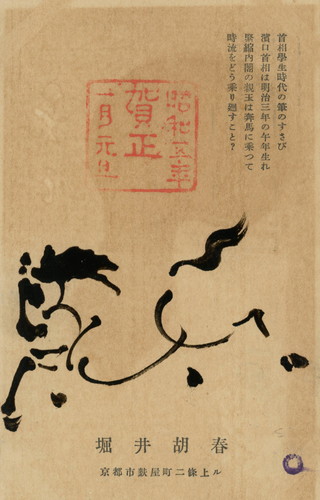 首相學生時代の筆のすさび
濱口首相は明治三年の午年生れ
緊縮内閣の親玉は奔馬に乗つて
時流をどう乗り廻すこと？
昭和五年
賀正
一月元旦
堀井胡春
京都市麩屋町二條上ル